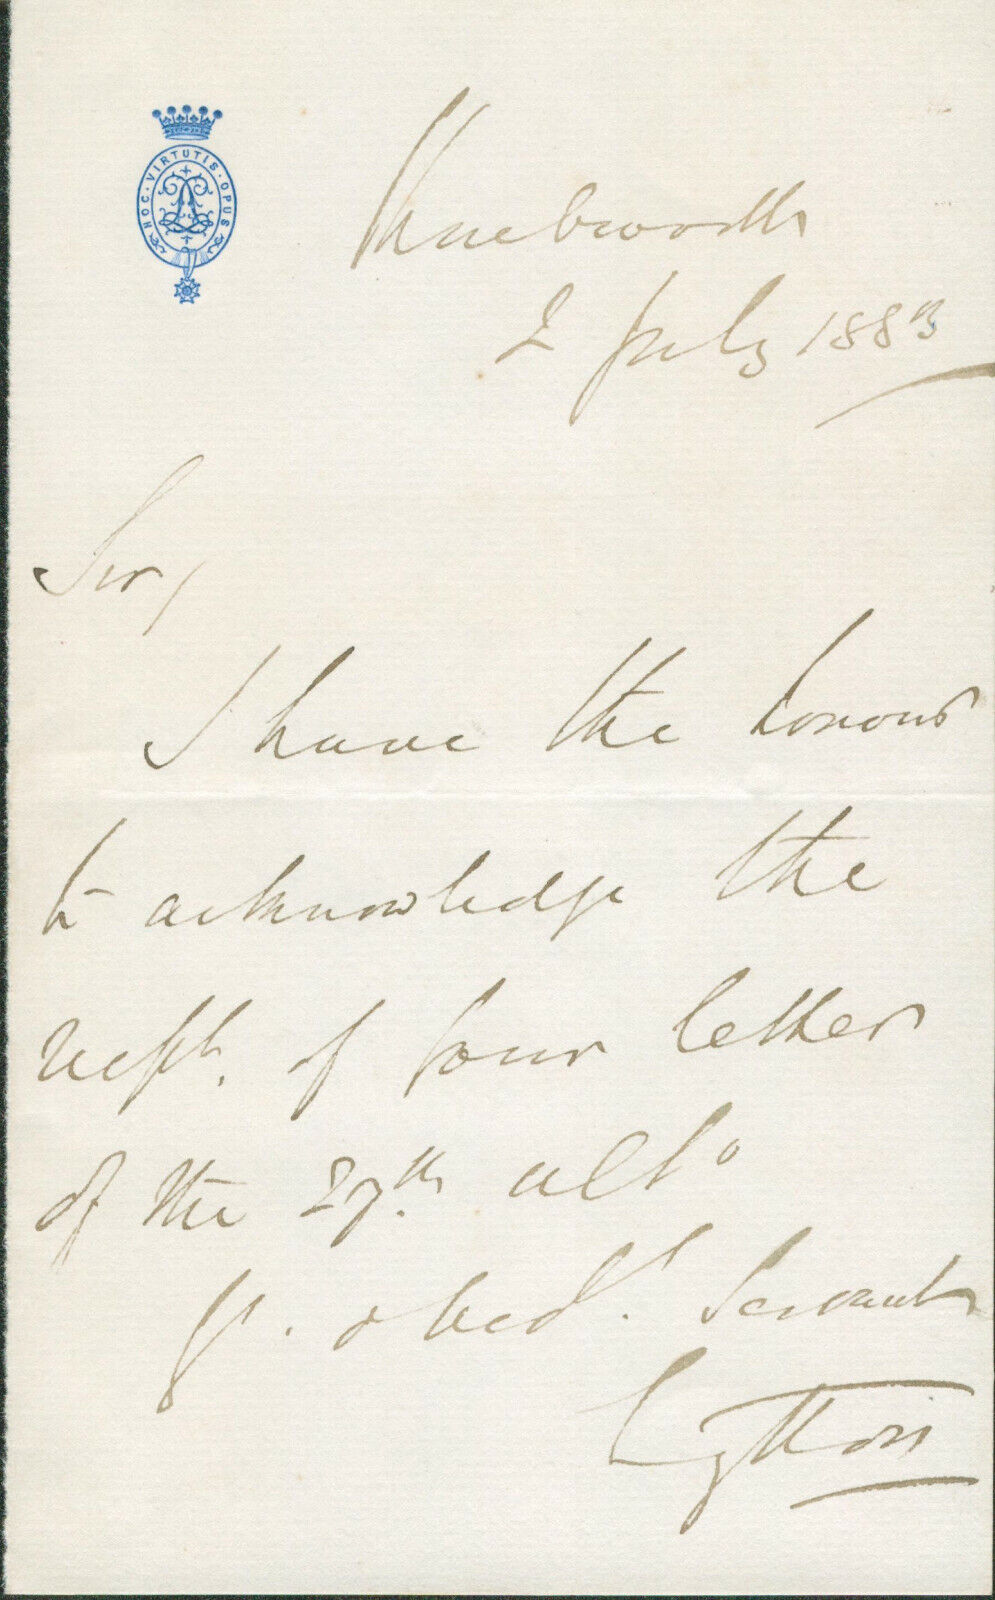 HOC · VIRTUTIS · OPUS
Knebworth
2 July 1883
Sir,
I have the honour
to acknowledge the
recpt. of your letter
of the 27th. ulto
yr. obedt. Servant
Lytton